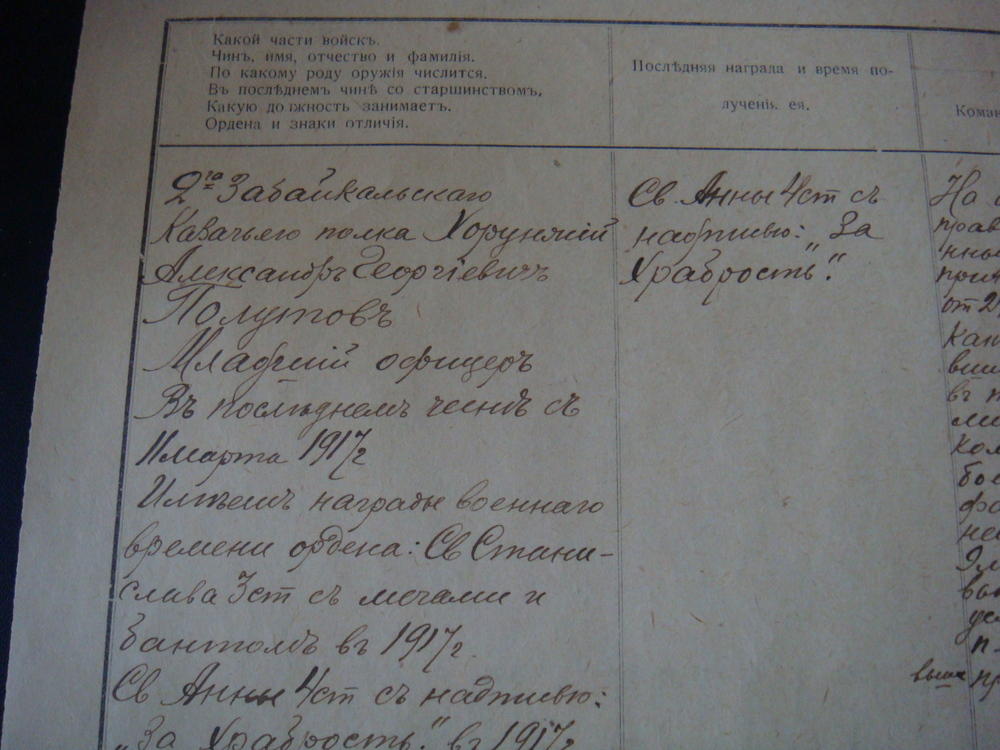 Какой части войскъ.
Чинъ, имя, отчество и фамилія.
По какому роду оружія числится.
Въ послѣднемъ чинѣ со старшинствомъ,
Какую должность занимаетъ.
Ордена и знаки отличія.
Послѣдняя награда и время по-
лученія ея.
Коман
2го Забайкальскаго
Казачьяго полка Хорунжій
Александръ Георгіевичъ
Полутовъ
Младшій офицеръ
Въ послѣднемъ чинѣ съ
11 марта 1917 г
Имѣетъ награды военнаго
времени ордена: Св Стани-
слава 3 ст съ мечами и
бантомъ въ 1917 г.
Св Анны 4 ст съ надписью:
„За Храбрость." въ 1917 г
Св. Анны 4 ст съ
надписью: „За
Храбрость".
На
прав
нны
при
от 2
Кан
вши
въ п
ми
Ком
бое
фа
не
вы
ус
п-
выше пр